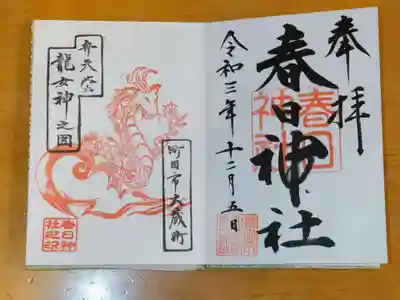 奉拝
春日神社
春日
神社
令和三年十二月五日
弁天堂
龍女神之図
町田市大蔵町
春日神
社之印